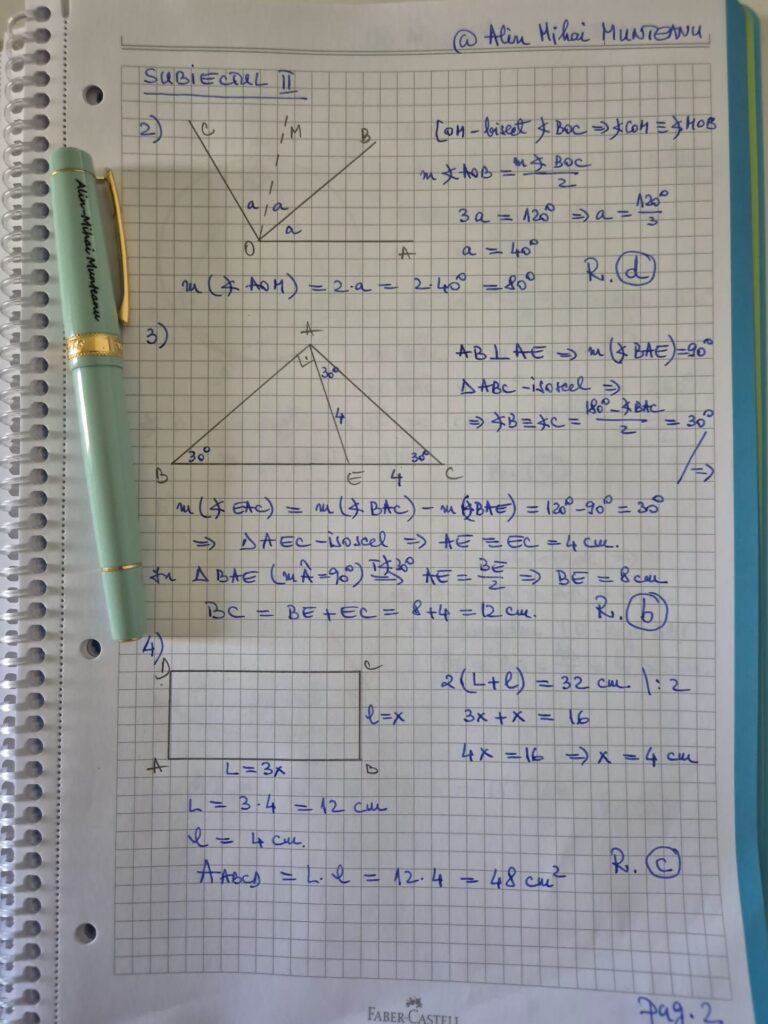 @ Alin Mihai MUNTEANU
SUBIECTUL II
2)
C M B
a a a
O A
[OM-bisect ∢BOC ⇒ ∢COM ≡ ∢MOB
m∢AOB = m∢BOC/2
3a = 120° ⇒ a = 120°/3
a = 40°
m(∢AOM) = 2·a = 2·40° = 80°
R. d
3)
A
30°
4
30° 30°
B E 4 C
AB⊥AE ⇒ m(∢BAE)=90°
ΔABC-isoscel ⇒
⇒ ∢B≡∢C = 180°-∢BAC/2 = 30°
⇒
m(∢EAC) = m(∢BAC) - m(∢BAE) = 120° - 90° = 30°
⇒ ΔAEC-isoscel ⇒ AE = EC = 4 cm.
În ΔBAE (mÂ=90°) T∢30°⇒ AE = BE/2 ⇒ BE = 8 cm
BC = BE + EC = 8+4 = 12 cm.
R. b
4)
D C
l=x
A L=3x B
2(L+l) = 32 cm. |:2
3x + x = 16
4x = 16 ⇒ x = 4 cm
L = 3·4 = 12 cm
l = 4 cm.
A ABCD = L·l = 12·4 = 48 cm²
R. c
Alin-Mihai Munteanu
FABER-CASTELL
Pag. 2